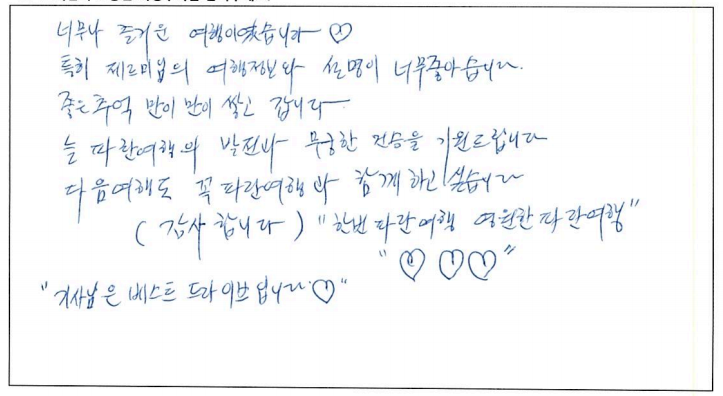 너무나 즐거운 여행이였습니다 ♡
특히 제르미님의 여행정보와 설명이 너무좋아습니다.
좋은추억 만이 만이 쌓고 갑니다
늘 파란여행의 발전과 무궁한 건승을 기원드립니다
다음여행도 꼭 파란여행과 함게 하고 싶습니다
(감사합니다) "한번 파란여행 영원한 파란여행"
"♡ ♡♡"
"기사님은 베스트 드라이브입니다.♡"